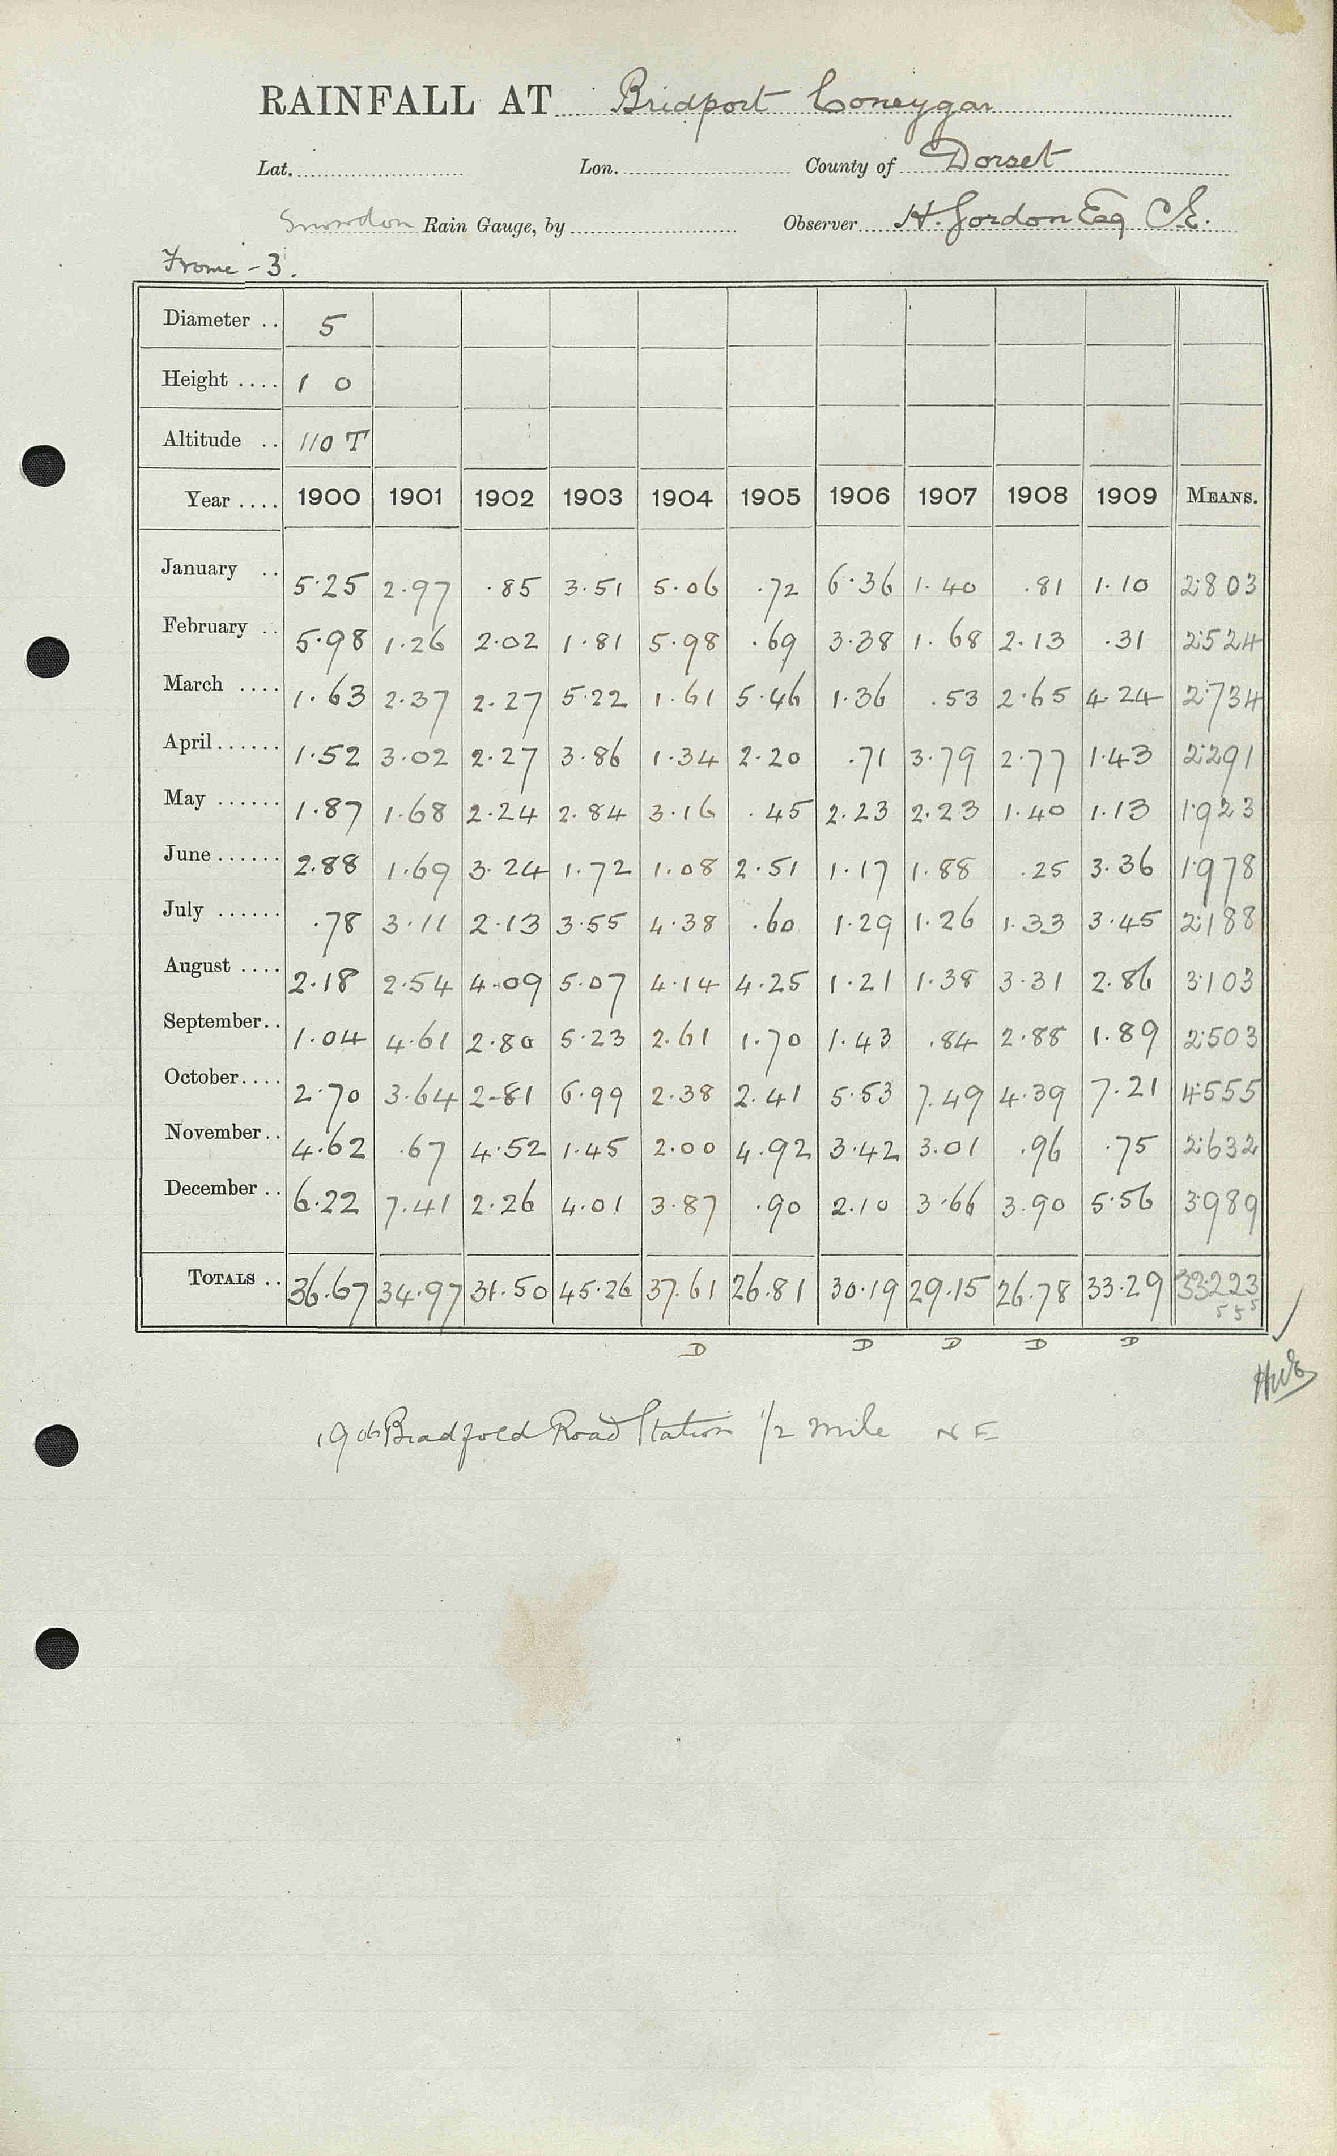 RAINFALL AT Bridport Coneygar
Lat. Lon. County of Dorset
Snowdon Rain Gauge, by Observer H. Gordon Esq C.E.
Frome - 3.
Diameter .. 5
Height .... 1 0
Altitude .. 110 T
Year .... 1900 1901 1902 1903 1904 1905 1906 1907 1908 1909 MEANS.
January .. 5.25 2.97 .85 3.51 5.06 .72 6.36 1.40 .81 1.10 2.803
February .. 5.98 1.26 2.02 1.81 5.98 .69 3.38 1.68 2.13 .31 2.524
March .... 1.63 2.37 2.27 5.22 1.61 5.46 1.36 .53 2.65 4.24 2.734
April ...... 1.52 3.02 2.27 3.86 1.34 2.20 .71 3.79 2.77 1.43 2.291
May ...... 1.87 1.68 2.24 2.84 3.16 .45 2.23 2.23 1.40 1.13 1.923
June ...... 2.88 1.69 3.24 1.72 1.08 2.51 1.17 1.88 .25 3.36 1.978
July ...... .78 3.11 2.13 3.55 4.38 .60 1.29 1.26 1.33 3.45 2.188
August .... 2.18 2.54 4.09 5.07 4.14 4.25 1.21 1.38 3.31 2.86 3.103
September.. 1.04 4.61 2.80 5.23 2.61 1.70 1.43 .84 2.88 1.89 2.503
October.... 2.70 3.64 2.81 6.99 2.38 2.41 5.53 7.49 4.39 7.21 4.555
November.. 4.62 .67 4.52 1.45 2.00 4.92 3.42 3.01 .96 .75 2.632
December .. 6.22 7.41 2.26 4.01 3.87 .90 2.10 3.66 3.90 5.56 3.989
TOTALS .. 36.67 34.97 31.50 45.26 37.61 26.81 30.19 29.15 26.78 33.29 33.223
5 5 5
D D D D D
Road Station 1/2 mile N E